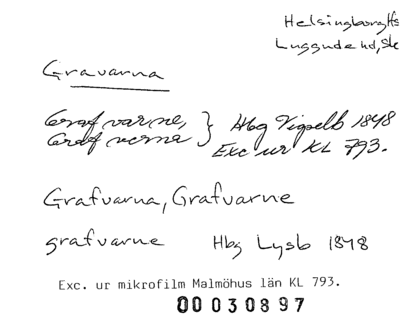 Helsingborg Hfs
Luggude hd, Sk
Gravarna
Graf varne, } Hbg Vigselb 1848
Graf verne } Exc ur KL 793.
Grafvarna, Grafvarne
grafvarne Hbg Lysb 1848
Exc. ur mikrofilm Malmöhus län KL 793.
00030897